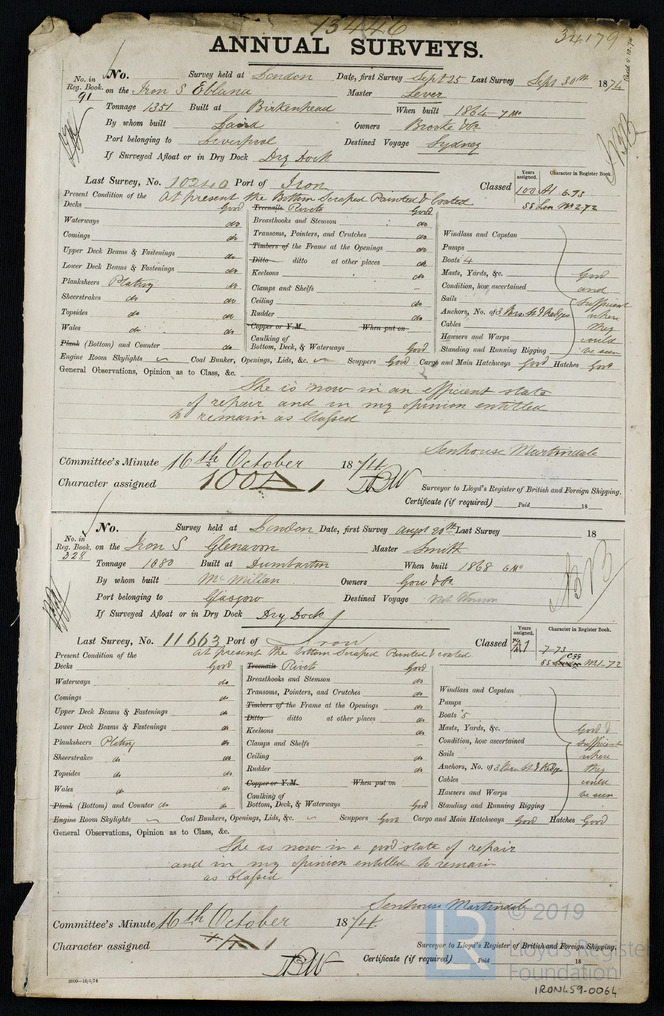 13446
34179
ANNUAL SURVEYS.
No. in Reg. Book. 91
No. Survey held at London Date, first Survey Sept 25 Last Survey Sept 30th 1874
on the Iron S Eblana Master Lever
Tonnage 1351 Built at Birkenhead When built 1864 7 Mo
By whom built Laird Owners Brooke & Co
Port belonging to Liverpool Destined Voyage Sydney
If Surveyed Afloat or in Dry Dock Dry Dock
Last Survey, No. Port of Iron Classed
Years assigned. Character in Register Book.
100 A1 6.73
Present Condition of the At present the Bottom Scraped Painted & Coated
Decks Good
Waterways do
Comings do
Upper Deck Beams & Fastenings do
Lower Deck Beams & Fastenings do
Planksheers Plating do
Sheerstrakes do do
Topsides do do
Wales do do
Plank (Bottom) and Counter do
Treenails Rivets Good
Breasthooks and Stemson do
Transoms, Pointers, and Crutches do
Timbers of the Frame at the Openings do
Ditto ditto at other places do
Keelsons do
Clamps and Shelfs –
Ceiling do
Rudder do
Copper or Y.M. When put on
Caulking of Bottom, Deck, & Waterways Good
Windlass and Capstan
Pumps
Boats 4
Masts, Yards, &c.
Condition, how ascertained
Sails
Anchors, No. of
Cables
Hawsers and Warps
Standing and Running Rigging
Good and Sufficient where they could be seen
Engine Room Skylights Coal Bunker, Openings, Lids, &c. Scuppers Good Cargo and Main Hatchways Good Hatches Good
General Observations, Opinion as to Class, &c.
She is now in an efficient state
of repair and in my opinion entitled
to remain as Classed
Senhouse Martindale
Committee's Minute 16th October 1874
Character assigned 100A1
Surveyor to Lloyd's Register of British and Foreign Shipping.
Certificate (if required) Paid 18
No. in Reg. Book. 328
No. Survey held at London Date, first Survey August 20th Last Survey 18
on the Iron S Glenavon Master Smith
Tonnage 1080 Built at Dumbarton When built 1868 6 Mo
By whom built McMillan Owners Gow & Co
Port belonging to Glasgow Destined Voyage
If Surveyed Afloat or in Dry Dock Dry Dock
Last Survey, No. 11663 Port of Iron Classed
Years assigned. Character in Register Book.
7.73
Present Condition of the at present the bottom Scraped Painted & coated
Decks Good
Waterways do
Comings do
Upper Deck Beams & Fastenings do
Lower Deck Beams & Fastenings do
Planksheers Plating do
Sheerstrakes do do
Topsides do do
Wales do do
Plank (Bottom) and Counter do do
Treenails Rivets Good
Breasthooks and Stemson do
Transoms, Pointers, and Crutches do
Timbers of the Frame at the Openings do
Ditto ditto at other places do
Keelsons do
Clamps and Shelfs –
Ceiling do
Rudder do
Copper or Y.M. When put on
Caulking of Bottom, Deck, & Waterways Good
Windlass and Capstan
Pumps
Boats 5
Masts, Yards, &c.
Condition, how ascertained
Sails
Anchors, No. of
Cables
Hawsers and Warps
Standing and Running Rigging
Good & Sufficient where they could be seen
Engine Room Skylights Coal Bunkers, Openings, Lids, &c. Scuppers Good Cargo and Main Hatchways Good Hatches Good
General Observations, Opinion as to Class, &c.
She is now in a good state of repair
and in my opinion entitled to remain
as Classed
Senhouse Martindale
Committee's Minute 16th October 1874
Character assigned
Surveyor to Lloyd's Register of British and Foreign Shipping.
Certificate (if required) Paid 18
© 2019
Lloyd's Register
Foundation
LR
IRON459-0064